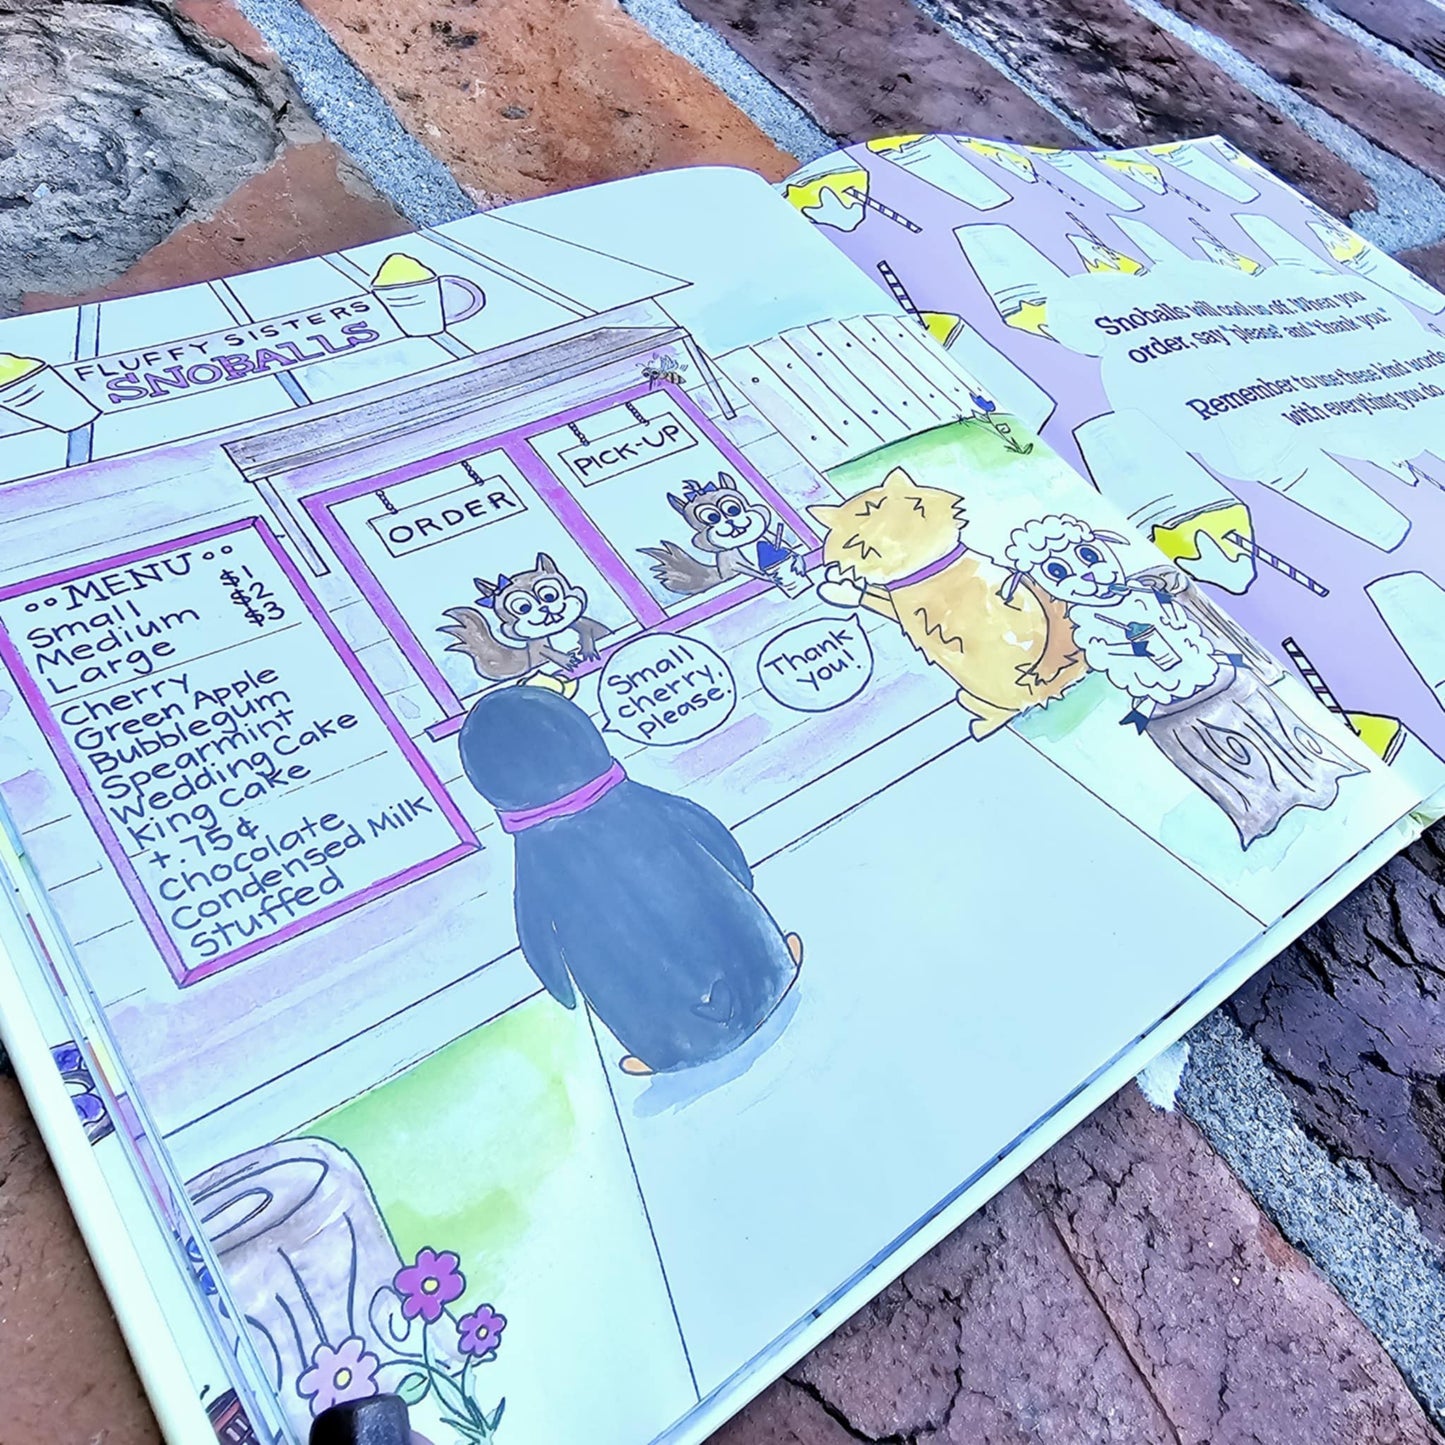 FLUFFY SISTERS
SNOBALLS
ORDER
PICK-UP
MENU
Small $1
Medium $2
Large $3
Cherry
Green Apple
Bubblegum
Spearmint
Wedding Cake
King Cake
+.75¢
Chocolate
Condensed Milk
Stuffed
Small
cherry,
please.
Thank
you!
Snoballs will cool us off. When you
order, say "please" and "thank you."
Remember to use these kind words
with everything you do.